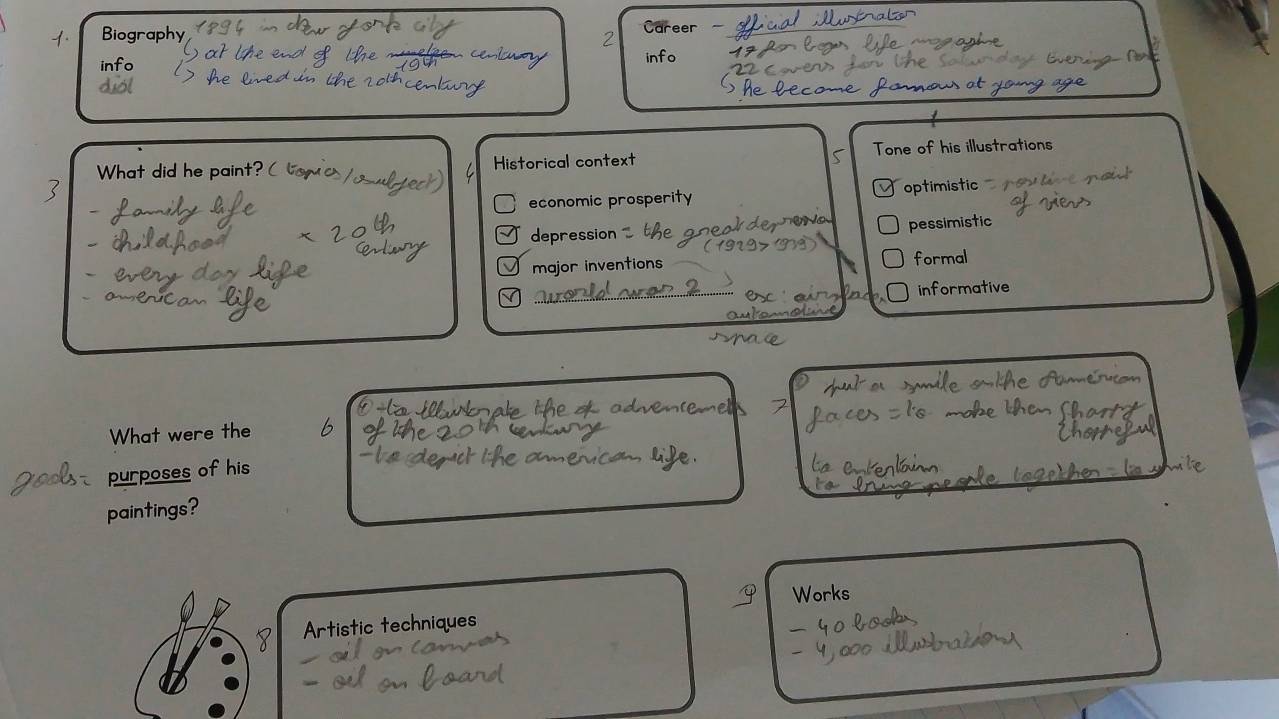 1. Biography info 1894 in New York City
↳ at the end of the 19th century
↳ he lived in the 20th century
did
2 Career info - official illustrator
17 for boys life magazine
22 covers for the Saturday Evening Post
↳ he become famous at young age
3 What did he paint? (topics/subject)
- family life
- childhood
- every day life
- american life
× 20th century
4 Historical context
economic prosperity
depression = the great depression
(1929 > 1939)
major inventions
world war 2
ex: airplace,
automotive
space
5 Tone of his illustrations
optimistic = positive point
of views
pessimistic
formal
informative
goals = What were the
purposes of his
paintings?
6 - to illustrate the advencements
of the 20th century
- to depict the american life.
7 put a smile on the American
faces = to make them
to entertain
to bring people together = to unite
8 Artistic techniques
- oil on canvas
- oil on board
9 Works
- 40 books
- 4,000 illustrations